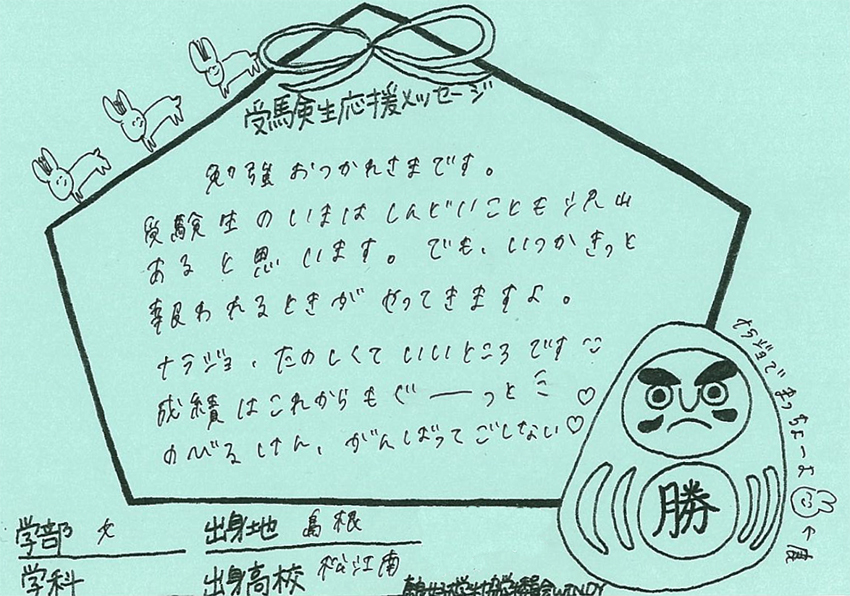 受験生応援メッセージ
勉強おつかれさまです。
受験生のいまはしんどいことも沢山
あると思います。でも、いつかきっと
報われるときがやってきますよ。
ナラジョ、たのしくていいところです
成績はこれからもぐーっと
のびるけん、がんばってごしない♡♡
ナラジョでまっちょーよ
←鹿
勝
学部 文
出身地 島根
学科
出身高校 松江南
WINDY